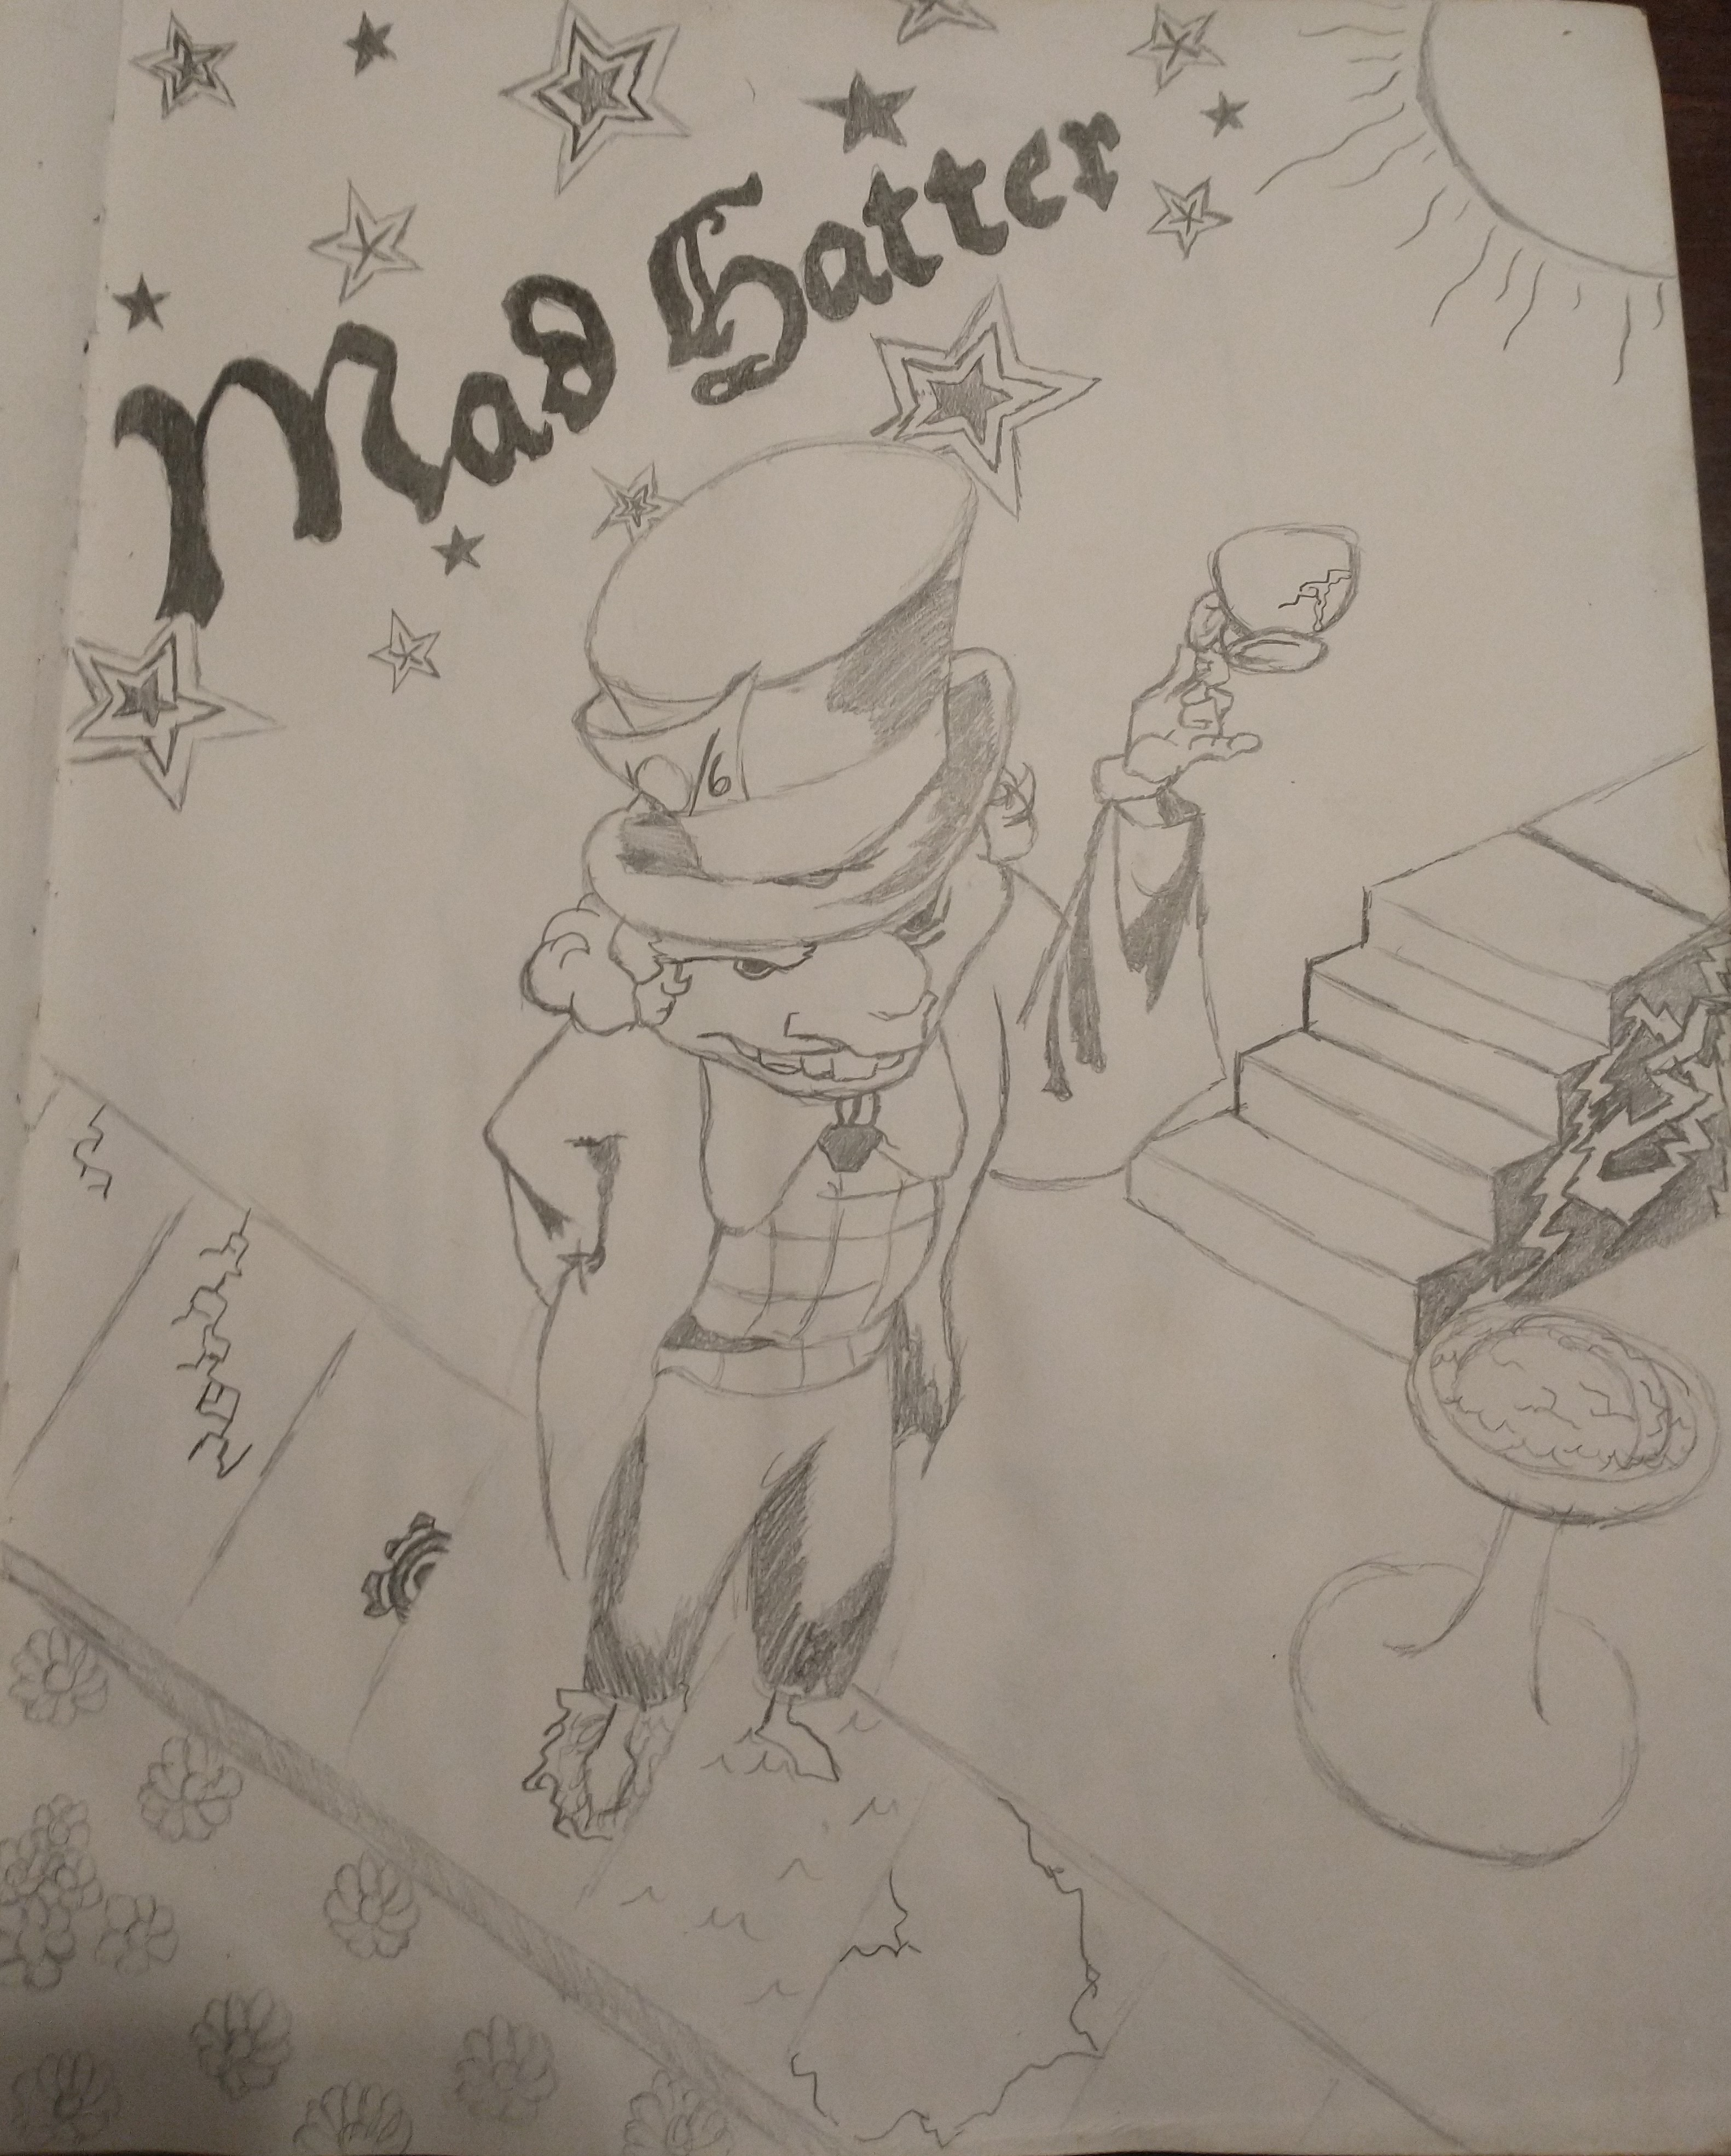 Mad Hatter
/6